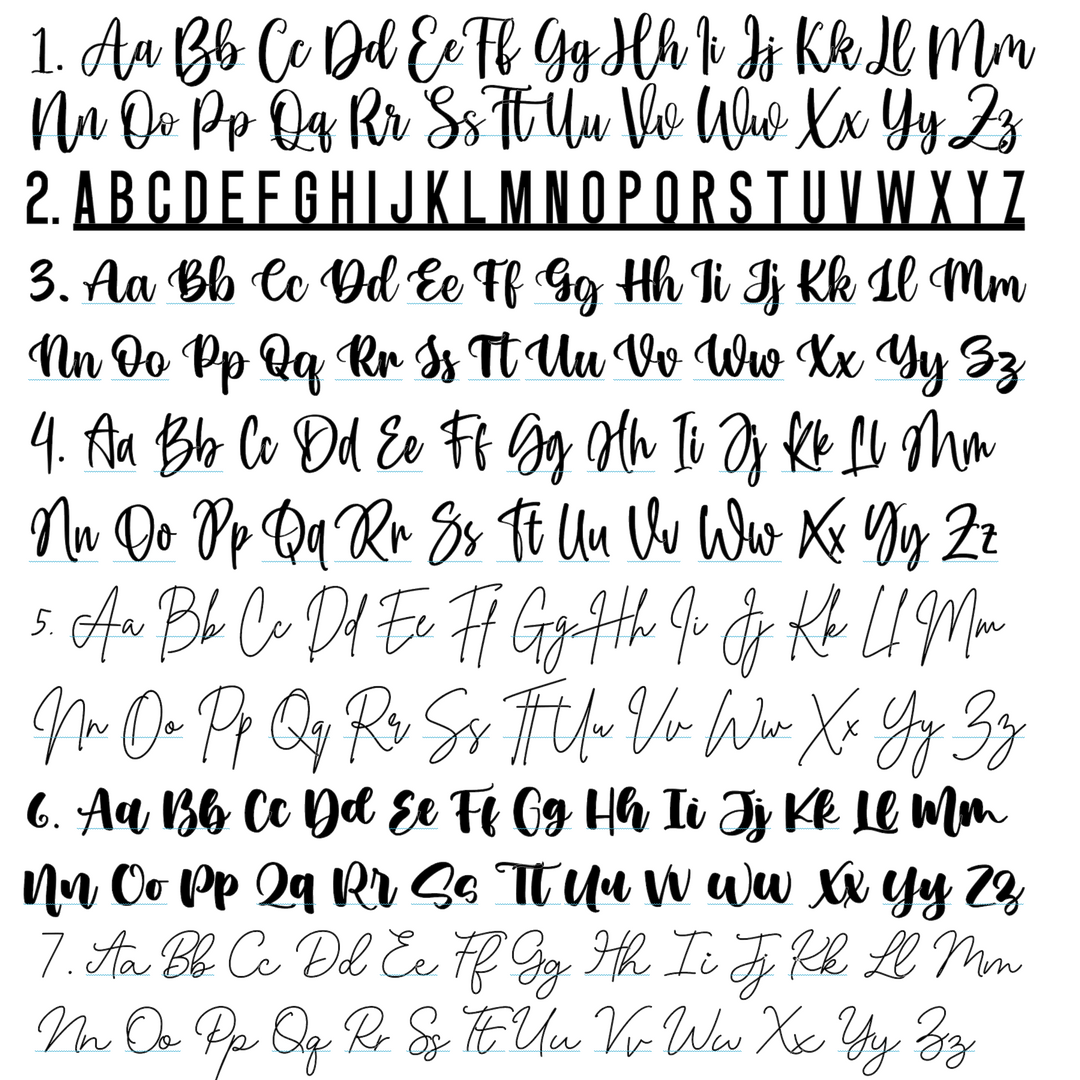 1. Aa Bb Cc Dd Ee Ff Gg Hh Ii Jj Kk Ll Mm
Nn Oo Pp Qq Rr Ss Tt Uu Vv Ww Xx Yy Zz
2. ABCDEFGHIJKLMNOPQRSTUVWXYZ
3. Aa Bb Cc Dd Ee Ff Gg Hh Ii Jj Kk Ll Mm
Nn Oo Pp Qq Rr Ss Tt Uu Vv Ww Xx Yy Zz
4. Aa Bb Cc Dd Ee Ff Gg Hh Ii Jj Kk Ll Mm
Nn Oo Pp Qq Rr Ss Tt Uu Vv Ww Xx Yy Zz
5. Aa Bb Cc Dd Ee Ff Gg Hh Ii Jj Kk Ll Mm
Nn Oo Pp Qq Rr Ss Tt Uu Vv Ww Xx Yy Zz
6. Aa Bb Cc Dd Ee Ff Gg Hh Ii Jj Kk Ll Mm
Nn Oo Pp Qq Rr Ss Tt Uu Vv Ww Xx Yy Zz
7. Aa Bb Cc Dd Ee Ff Gg Hh Ii Jj Kk Ll Mm
Nn Oo Pp Qq Rr Ss Tt Uu Vv Ww Xx Yy Zz